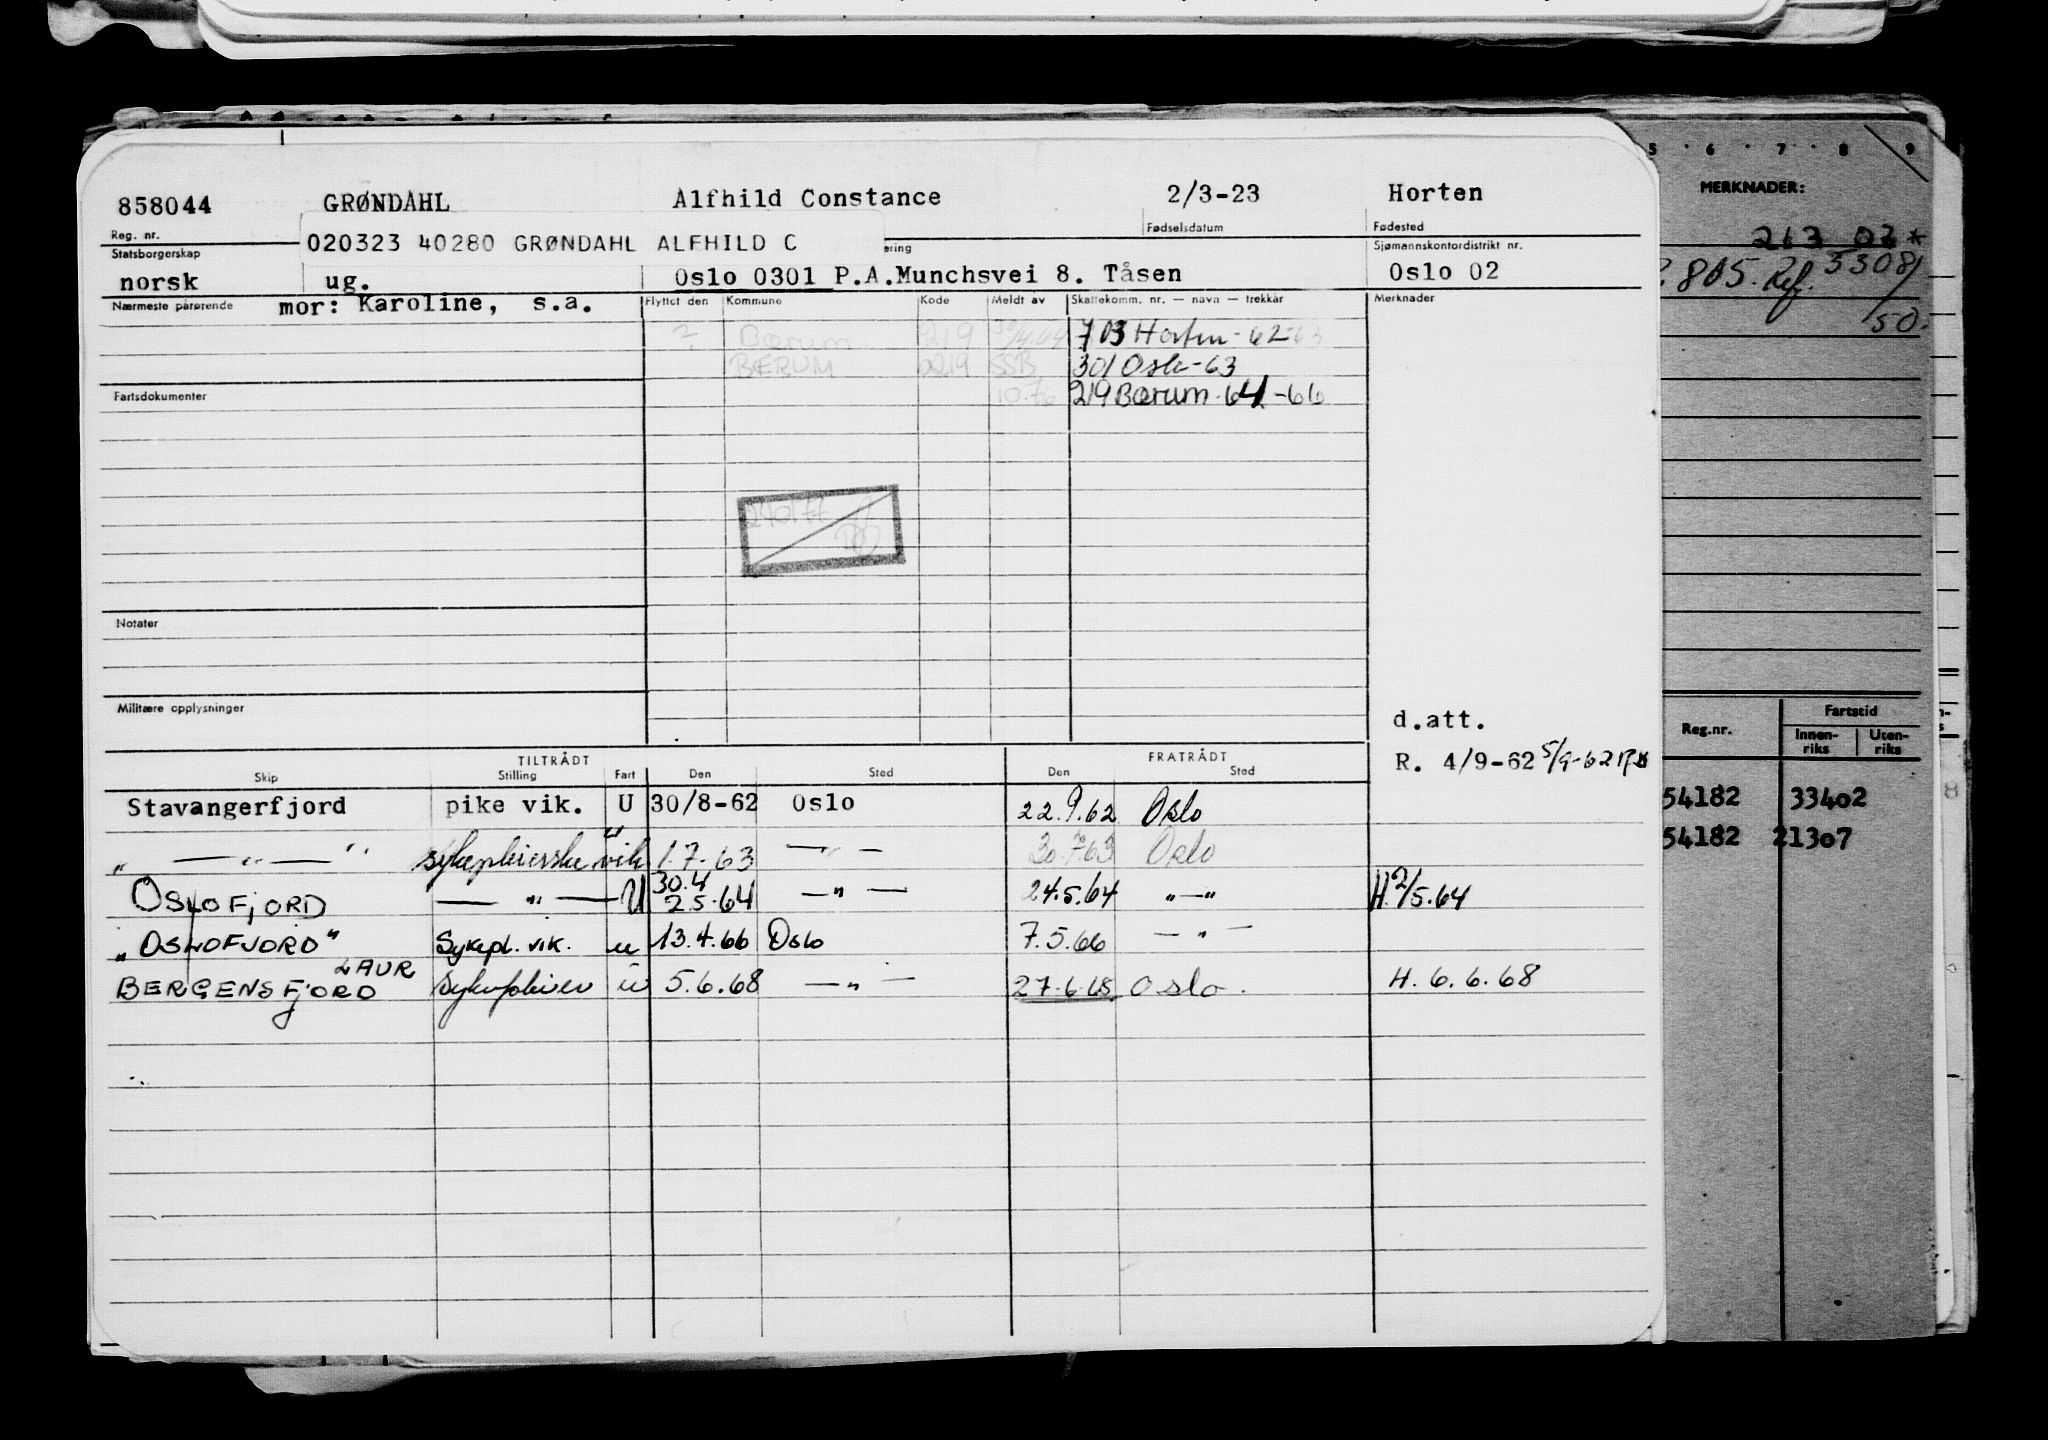 858044 GRØNDAHL Alfhild Constance 2/3-23 Horten
Reg. nr. Fødselsdatum Fødested
020323 40280 GRØNDAHL ALFHILD C
Statsborgerskap Sjømannskontordistrikt nr.
norsk ug. Oslo 0301 P.A.Munchsvei 8. Tåsen Oslo 02
Nærmeste pårørende mor: Karoline, s.a. Flyttet den Kommune Kode Meldt av Skattekomm. nr. — navn — trekkår Merknader
? Bærum 219 703 Horten - 62-63
BÆRUM 0219 SSB 301 Oslo-63
Fartsdokumenter 10.76 219 Bærum-64-66
240177
Notater
Militære opplysninger
d.att.
R. 4/9-62 5/9-62
TILTRÅDT FRATRÅDT
Skip Stilling Fart Den Sted Den Sted
Stavangerfjord pike vik. U 30/8-62 Oslo 22.9.62 Oslo
„ — „ — " sykepleierske vik " 1.7-63 — „ — 30.7.63 Oslo
OSLOFJORD — „ — U 30.4 2.5-64 — „ — 24.5.64 „—„ H. 2/5.64
„OSLOFJORD" Sykepl. vik. u 13.4.66 Oslo 7.5.66 — „ —
BERGENSFJORD LAUR Sykepleier u 5.6.68 — „ — 27.6.68 Oslo. H. 6.6.68
5 6 7 8 9
MERKNADER:
213 03 *
805. Ref. 53081
/50.
Reg.nr. Fartstid
Innen-riks Uten-riks
54182 33402
54182 21307